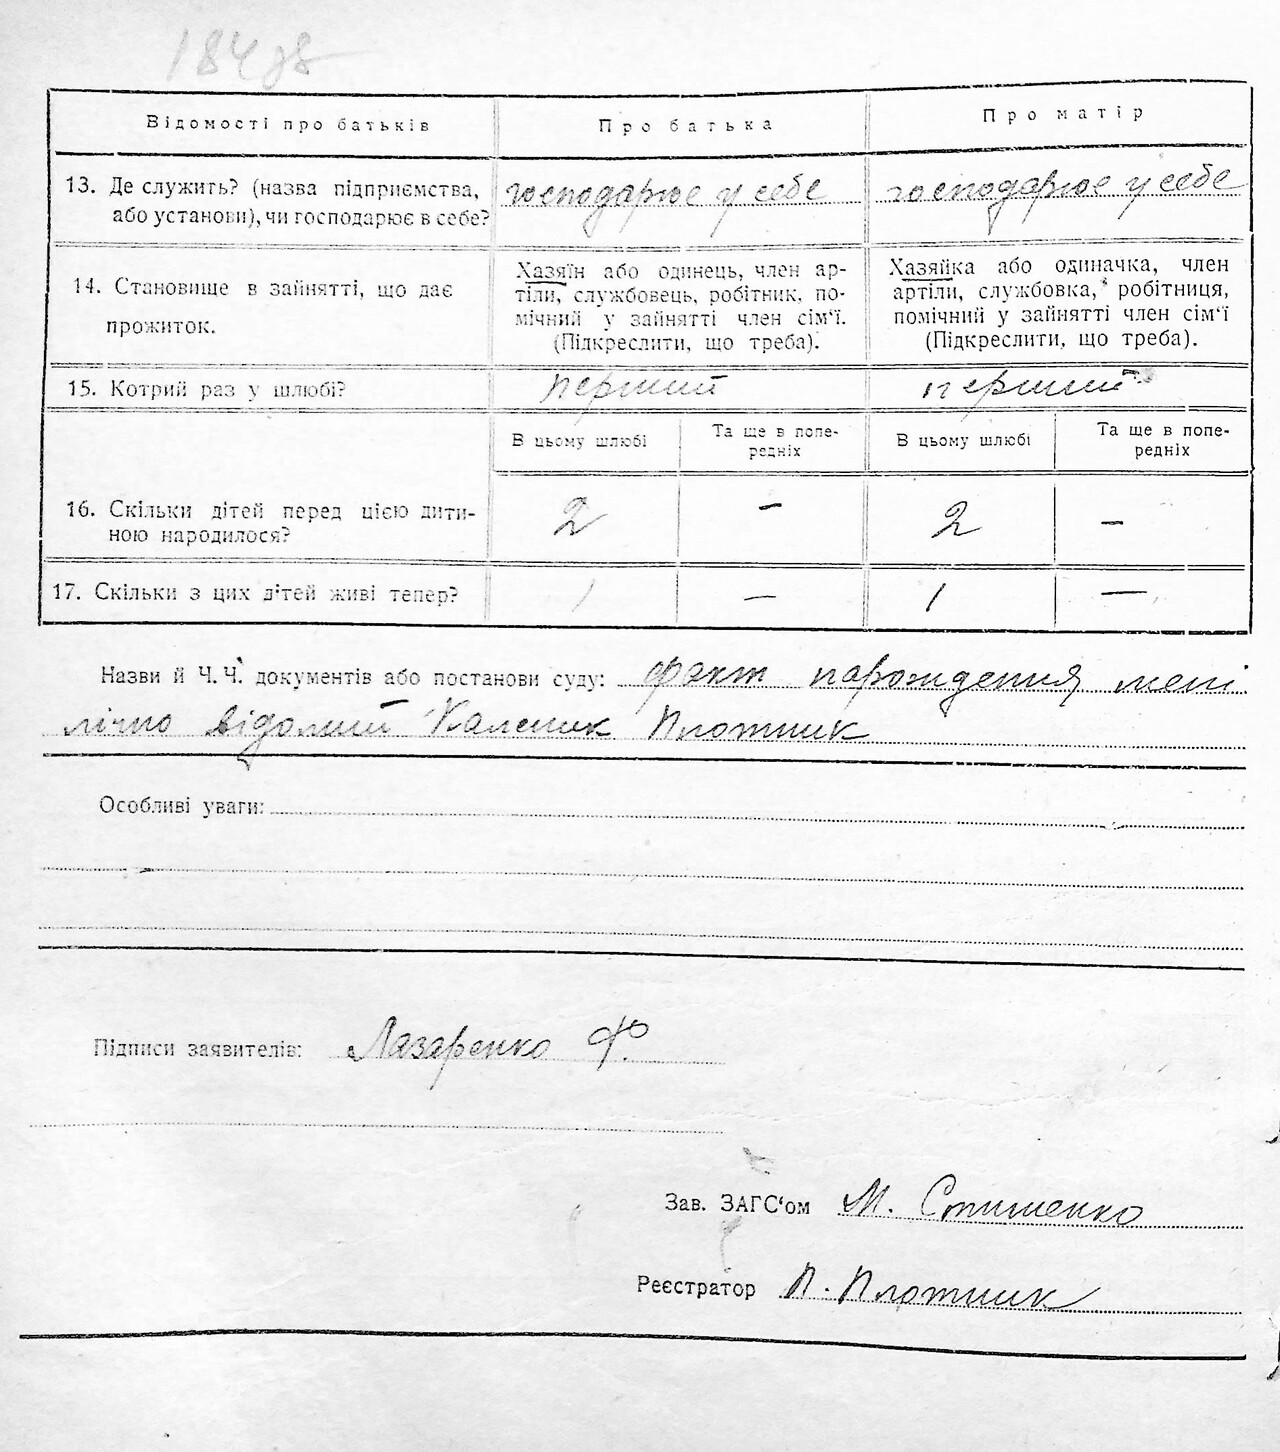 184 зв
Відомості про батьків
Про батька
Про матір
13. Де служить? (назва підприємства,
або установи), чи господарює в себе?
господарює у себе
господарює у себе
14. Становище в зайнятті, що дає
прожиток.
Хазяїн або одинець, член ар-
тіли, службовець, робітник, по-
мічний у зайнятті член сім'ї.
(Підкреслити, що треба).
Хазяйка або одиначка, член
артіли, службовка, робітниця,
помічний у зайнятті член сім'ї
(Підкреслити, що треба).
15. Котрий раз у шлюбі?
перший
перший
В цьому шлюбі
Та ще в попе-
редніх
В цьому шлюбі
Та ще в попе-
редніх
16. Скільки дітей перед цією дити-
ною народилося?
2
—
2
—
17. Скільки з цих дітей живі тепер?
1
—
1
—
Назви й Ч.Ч. документів або постанови суду: факт народження мені
лічно відомий Каленик Плотник
Особливі уваги:
Підписи заявителів: Лазаренко Ф.
Зав. ЗАГС'ом М. Стишенко
Реєстратор П. Плотник